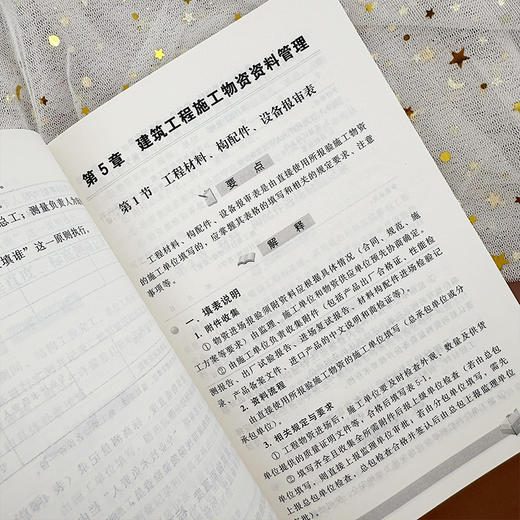 总工；测量负责人为
填谁”这一原则执行。
第5章 建筑工程施工物资资料管理
第1节 工程材料、构配件、设备报审表
要点
工程材料、构配件、设备报审表是由直接使用所报验施工物资
的施工单位填写的，应掌握其表格的填写和相关的规定要求、注意
事项等。
解释
一、填表说明
1. 附件收集
① 物资进场报验须附资料应根据具体情况（合同、规范、施
工方案等要求）由监理、施工单位和物资供应单位预先协商确定。
② 由施工单位负责收集附件（包括产品出厂合格证、性能检
测报告、出厂试验报告、进场复试报告、材料构配件进场检验记
录、产品备案文件、进口产品的中文说明和商检证等）。
2. 资料流程
由直接使用所报验施工物资的施工单位填写（总承包单位或分
承包单位）。
3. 相关规定与要求
① 工程物资进场后，施工单位要及时检查外观、数量及供货
单位提供的质量证明文件等，合格后填写表5-1。
② 填写齐全且收集全所需附件后报上级单位检查（若由总包
单位填写，则直接上报监理单位审批，若由分包单位填写，需先
上报总包单位检查，总包检查合格并签认后由总包上报监理单位
审批）。